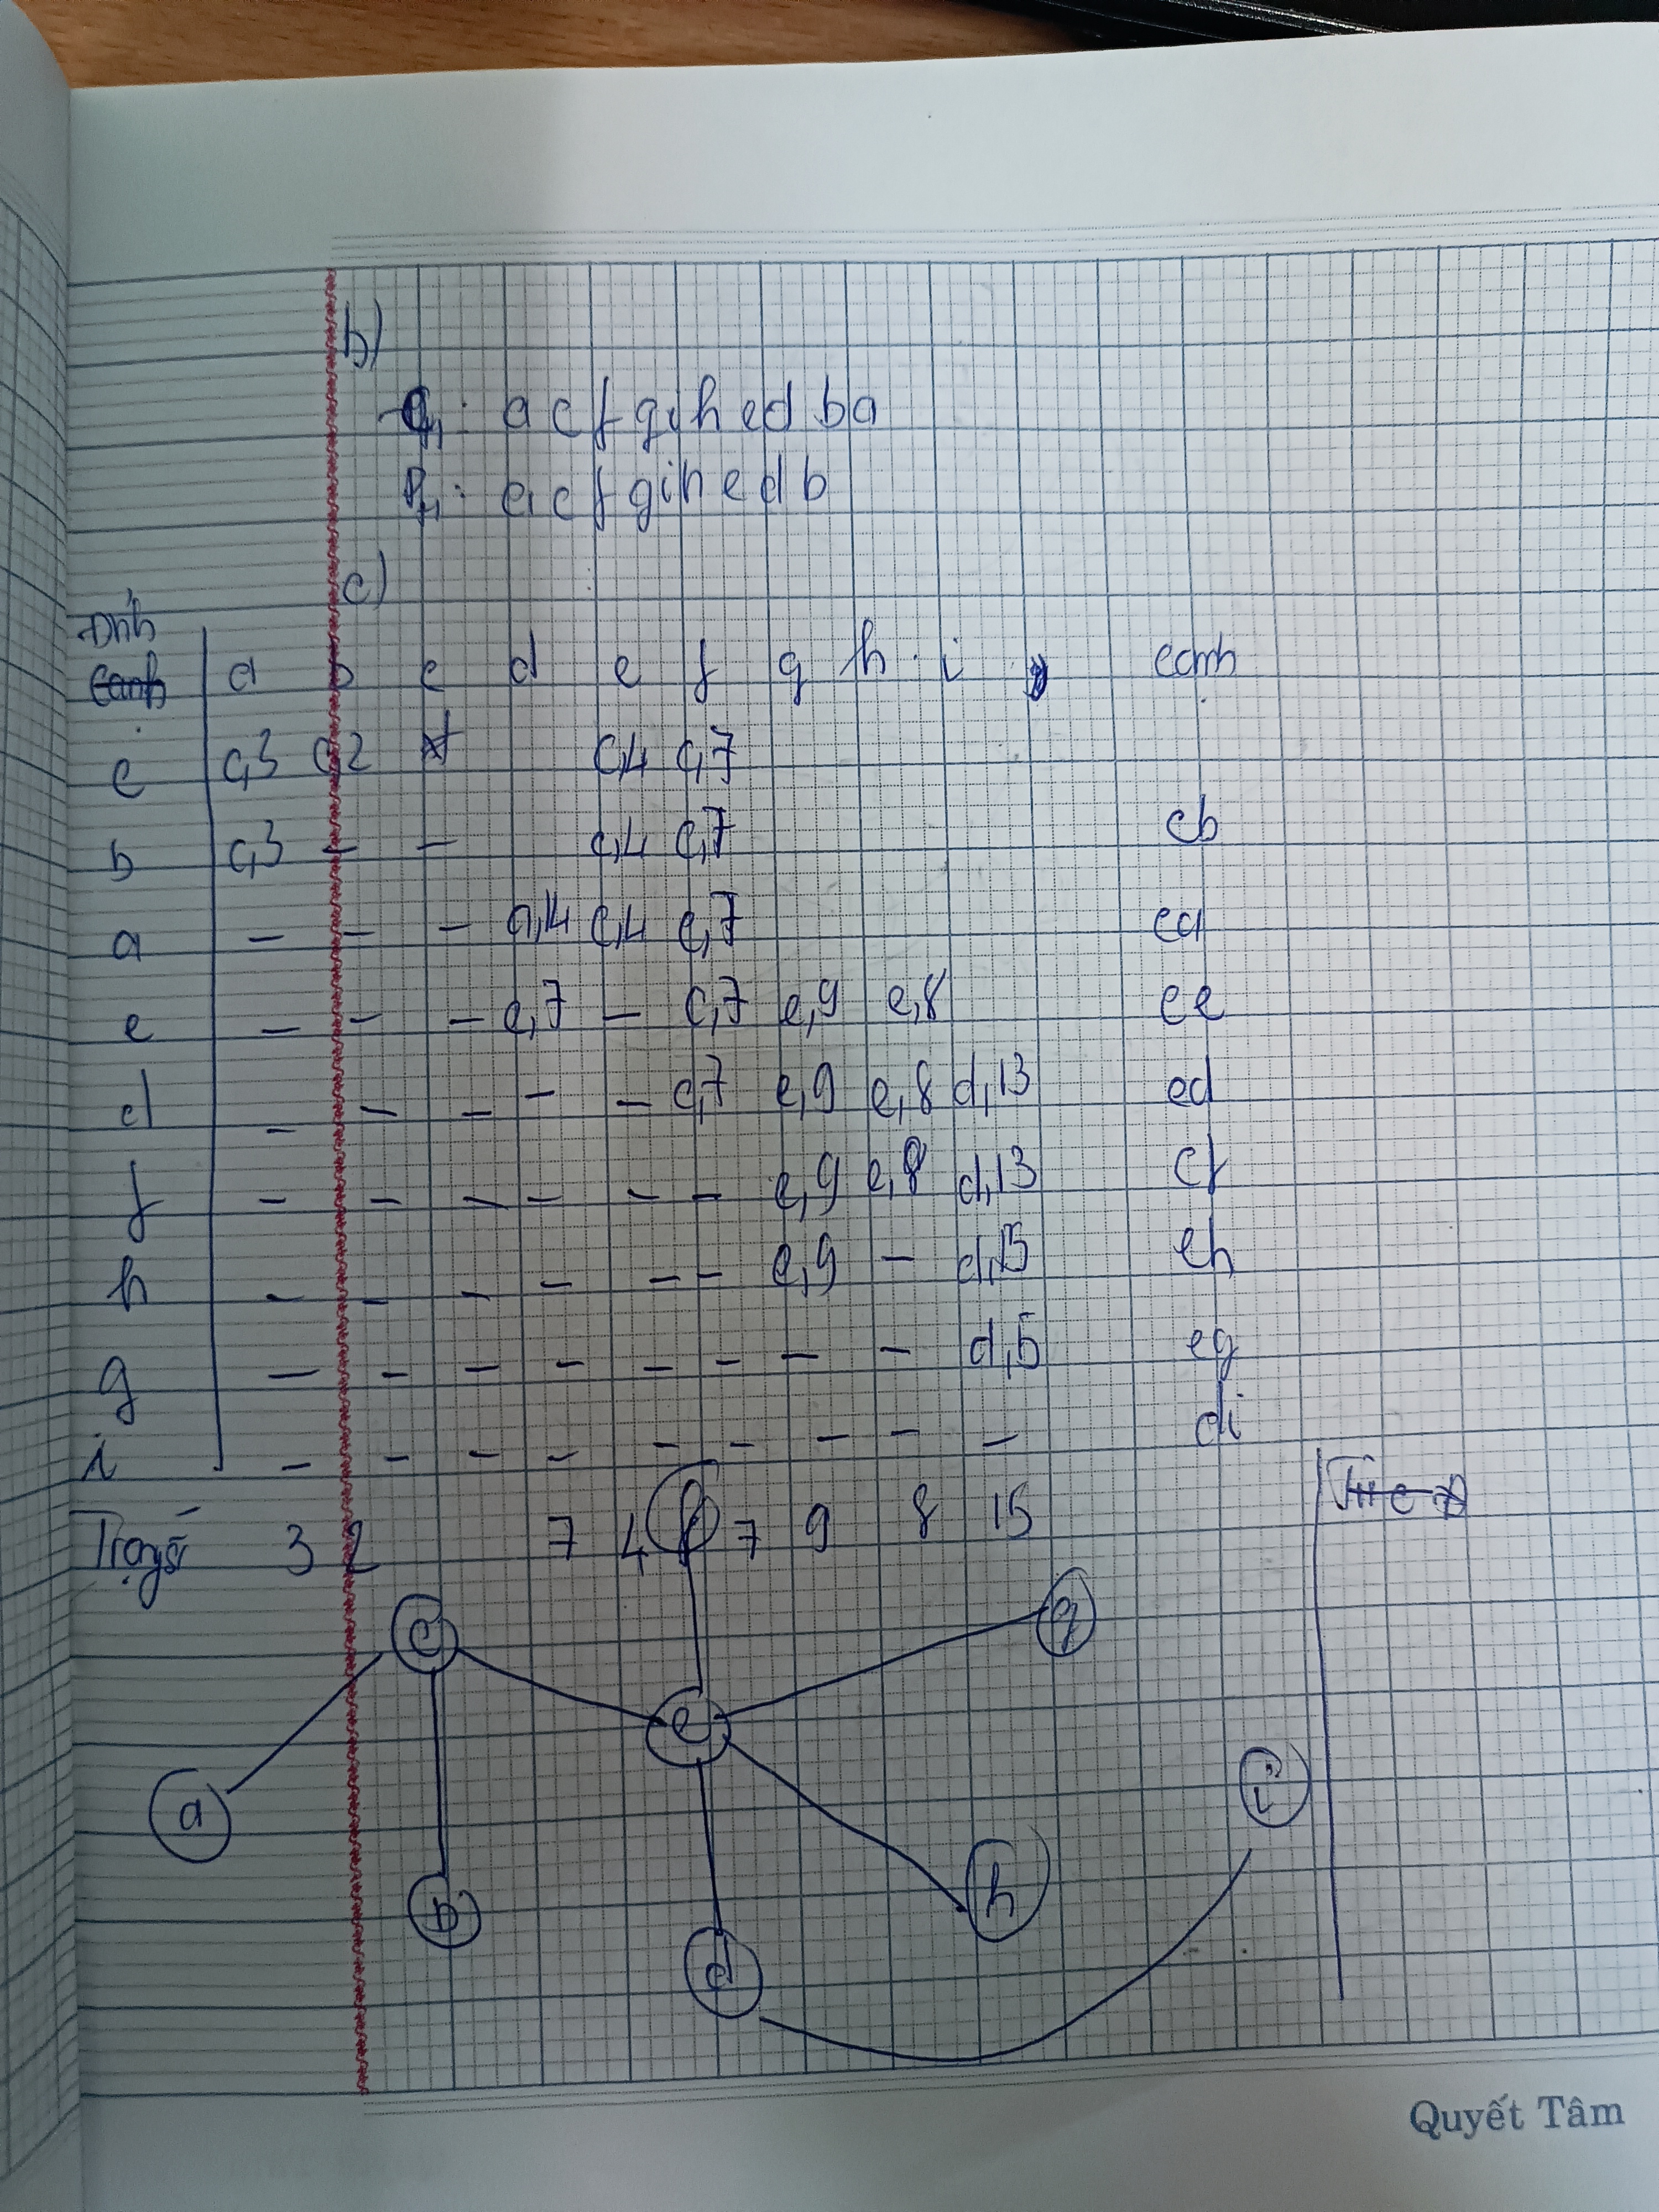 b)
: a c f g i h e d b a
: a c f g i h e d b
c)
Đỉnh
a b c d e f g h i cạnh
c c,3 c,2 c,4 c,7
b c,3 – – c,4 c,7 cb
a – – – a,14 c,4 c,7 ca
e – – – e,7 – c,7 e,9 e,8 ce
d – – – – – c,7 e,9 e,8 d,13 ed
f – – – – – – e,9 e,8 d,13 cf
h – – – – – – e,9 – d,15 eh
g – – – – – – – – eg
i – – – – – – – – – di
Trọng số 3 2 7 4 7 9 8 15
f
c
g
e
i
a
h
b
d
Quyết Tâm